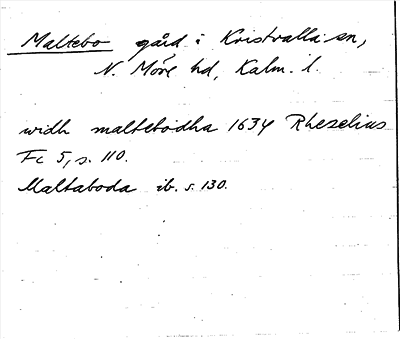 Maltebo gård i Kristvalla sn,
N. Möre hd, Kalm. l.
widh maltebodha 1634 Rhezelius
Fc 5, s. 110.
Maltaboda ib. s. 130.